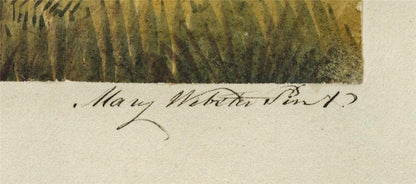 Mary Webster Pinxt.